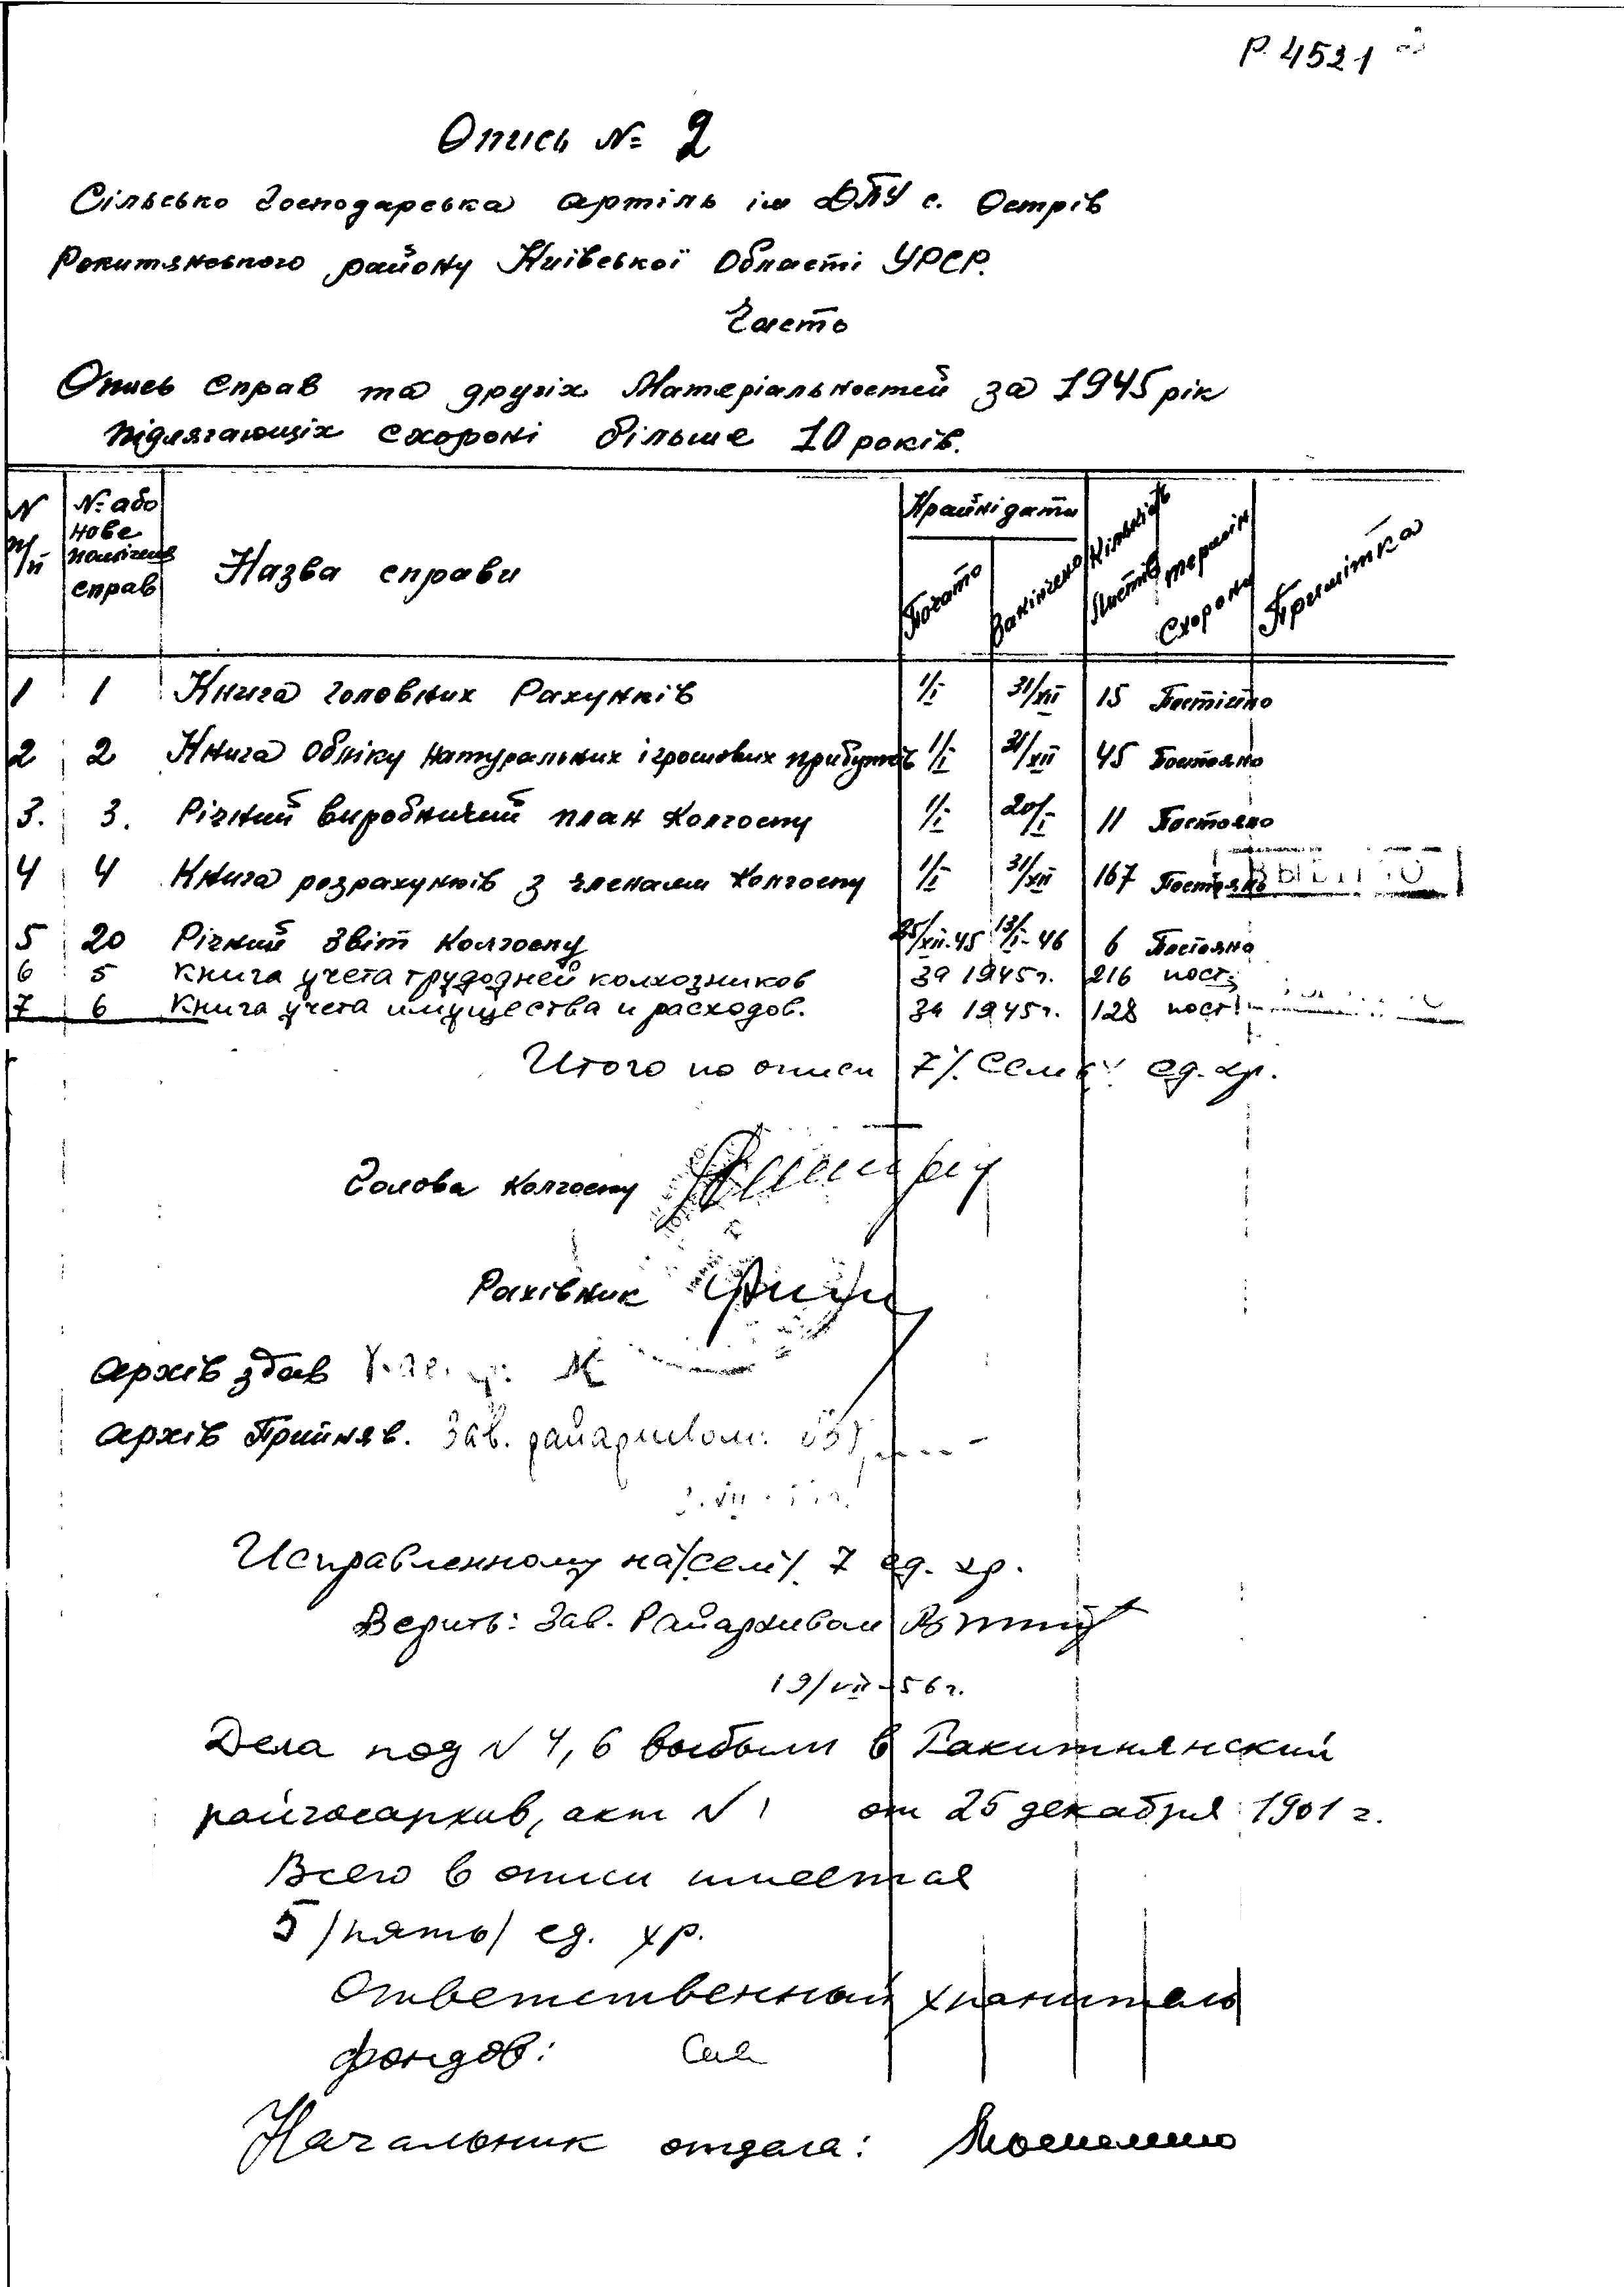 Р. 4521
Опись № 2
Сільсько Господарська артіль ім ДПУ с. Острів
Рокитянського району Київської Області УРСР.
Часть
Опись Справ та другіх Матеріальностей за 1945 рік
підлягающіх схороні більше 10 років.
N п/п № або нове справ Назва справи Крайні дати Почато Закінчено Кількість Листів термін Схорони Примітка
1 1 Книга головних Рахунків 1/I 31/XII 15 Постійно
2 2 Книга Обліку натуральних і грошових прибутків 1/I 31/XII 45 Постояно
3. 3. Річний виробничий план Колгоспу 1/I 20/I 11 Постояно
4 4 Книга розрахунків з членами Колгоспу 1/I 31/XII 167 Постояно ВЫБЫЛО
5 20 Річний Звіт Колгоспу 25/XII-45 13/I-46 6 Постояно
6 5 Книга учета трудодней колхозников за 1945 г. 216 пост.
7 6 Книга учета имущества и расходов. за 1945 г. 128 пост.
Итого по описи 7/. Семь/ ед. хр.
Голова Колгоспу
Рахівник
Архів здав
Архів Прийняв. Зав. райархивом:
Исправленному на /семь/ 7 ед. хр.
Верить: Зав. Райархивом
19/VII-56 г.
Дела под N 4, 6 выбыли в Ракитнянский
райгосархив, акт N 1 от 25 декабря 1901 г.
Всего в описи имеется
5 /пять/ ед. хр.
Ответственный хранитель
фондов:
Начальник отдела: